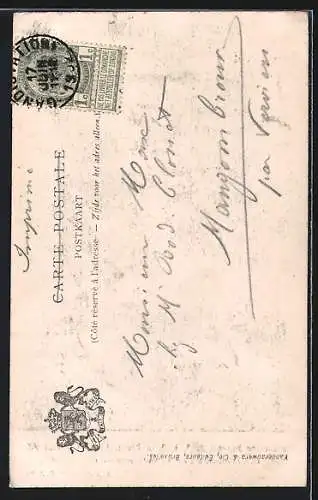 Imprimé
CARTE POSTALE
POSTKAART
(Côté réservé à l'adresse. — Zijde voor het adres alleen.)
Monsieur Max
by Mr Rod. Clouet
Mangombroux
par Verviers
GAND (STATION)
17
1c 1c
Vanderauwera & Cie, Éditeurs, Bruxelles.